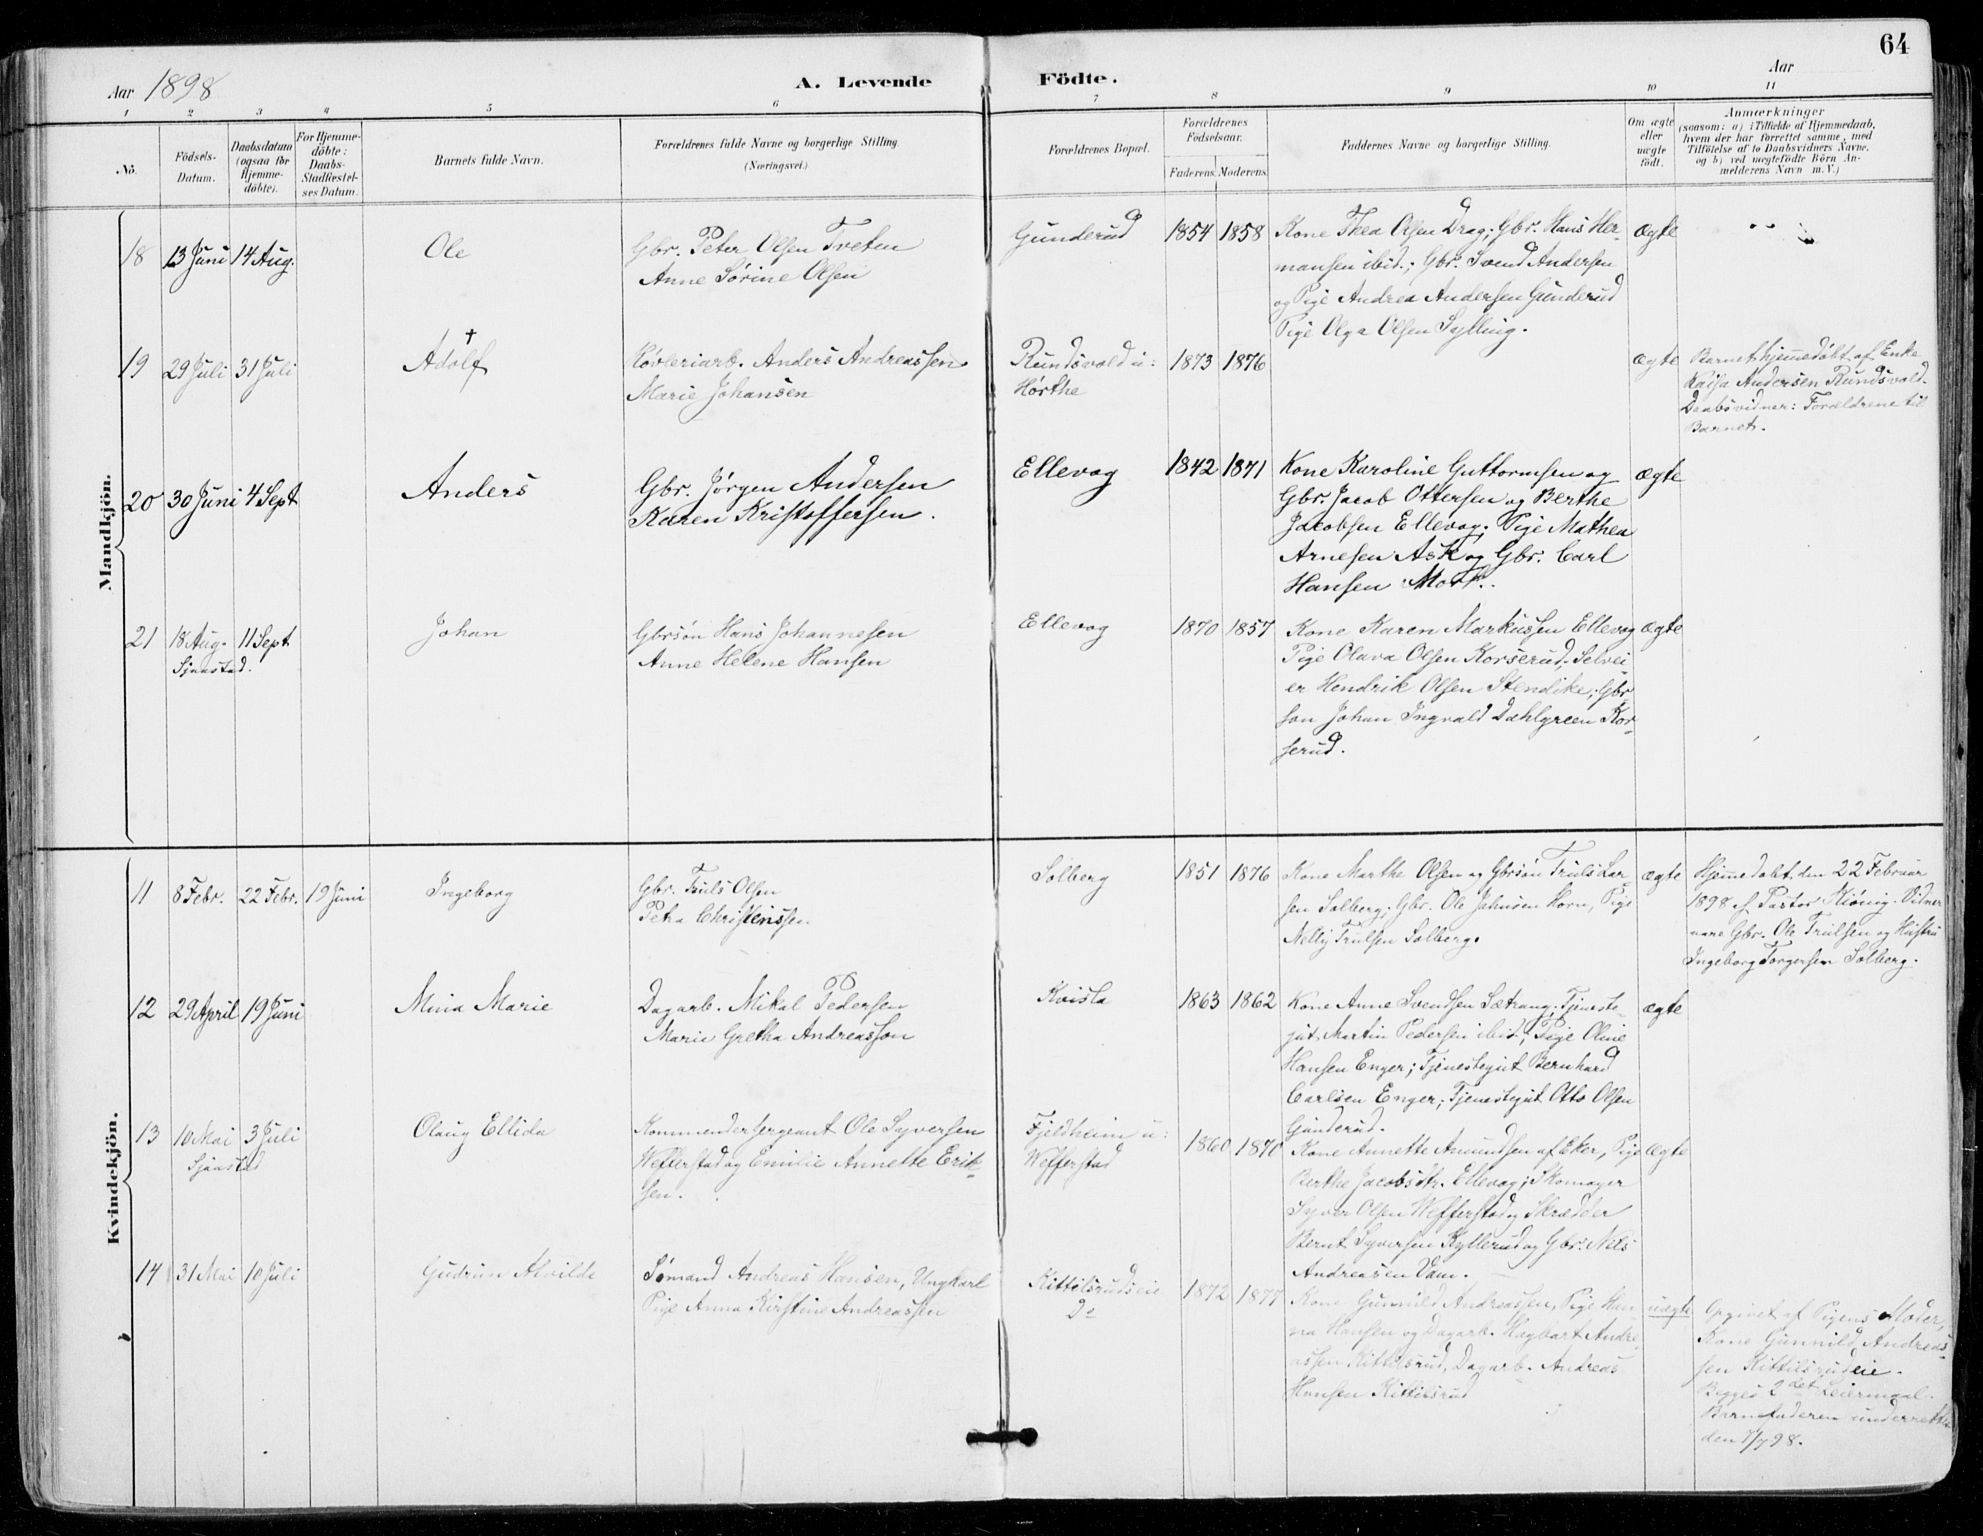 64
Aar 1898
A. Levende Födte.
Aar
1 2 3 4 5 6 7 8 9 10 11
No.
Födsels-
Datum.
Daabsdatum
(ogsaa for
Hjemme-
döbte).
For Hjemme-
döbte:
Daabs-
Stadfæstel-
ses Datum.
Barnets fulde Navn.
Forældrenes fulde Navne og borgerlige Stilling
(Næringsvei.)
Forældrenes Bopæl.
Forældrenes
Födselsaar.
Faderens. Moderens.
Faddernes Navne og borgerlige Stilling.
Om ægte
eller
uægte
födt.
Anmærkninger
(saasom: a) i Tilfælde af Hjemmedaab,
hvem der har forrettet samme, med
Tilföielse af to Daabsvidners Navne,
og b) ved uægtefödte Börn An-
melderens Navn m. V.)
Mandkjön.
18 13 Juni 14 Aug.
Ole
Gbr. Peter Olsen Tveten
Anne Sørine Olsen
Gunderud
1854 1858
Kone Thea Olsen Drag; Gbr. Hans Her-
mansen ibid.; Gbr. Svend Andersen
og Pige Andrea Andersen Gunderud
Pige Olga Olsen Sylling.
ægte
19 29 Juli 31 Juli
Adolf †
Høvleriarb. Anders Andreassen
Marie Johansen
Rundsvold u:
Hørthe
1873 1876
ægte
Barnet hjemmedøbt af Enke
Kaisa Andersen Rundsvold.
Daabsvidner: Forældrene til
Barnet.
20 30 Juni 4 Sept
Anders
Gbr. Jørgen Andersen
Karen Kristoffersen.
Ellevog
1842 1871
Kone Karoline Guttormsen og
Gbr. Jacob Ottersen og Berthe
Jacobsen Ellevog; Pige Mathea
Arnesen Ask og Gbr. Carl
Hansen Mork.
ægte
21 18 Aug. 11 Sept
Sjaastad.
Johan
Gbrsøn Hans Johannesen
Anne Helene Hansen
Ellevog
1870 1857
Kone Karen Markussen Ellevog
Pige Olava Olsen Korserud, Selvei-
er Hendrik Olsen Stendike; Gbr
søn Johan Ingvald Dahlgreen Kor-
serud.
ægte
Kvindekjön.
11 8 Febr. 22 Febr. 19 Juni
Ingeborg
Gbr. Truls Olsen
Petra Christenssen
Solberg
1851 1876
Kone Marthe Olsen og Gbrsøn Truls Lar-
sen Solberg; Gbr. Ole Johnsen Horn, Pige
Nelly Trulsen Solberg.
ægte
Hjemmedøbt den 22 Februar
1898 af Pastor Hiorrig. Vidner
vare Gbr. Ole Trulsen og Hustru
Ingeborg Torgersen Solberg.
12 29 April 19 Juni
Mina Marie
Dagarb. Mikal Pedersen
Marie Gretha Andreasson
Kvisla
1863 1862
Kone Anne Svendsen Sætrang; Tjeneste-
gut Martin Pedersen ibid.; Pige Oline
Hansen Enger; Tjenestegut Bernhard
Carlsen Enger; Tjenestegut Otto Olsen
Gunderud.
ægte
13 10 Mai 3 Juli
Sjaastad
Olaug Ellida
Kommendersergeant Ole Syversen
Wefferstad og Emilie Annette Erik-
sen.
Fjeldheim u:
Wefferstad
1860 1870
Kone Annette Amundsen af Eker, Pige
Berthe Jacobsdtr. Ellevog; Skomager
Syver Olsen Wefferstad og Skrædder
Bernt Syversen Kyllerud og Gbr. Nels
Andreasen Dam.
ægte
14 31 Mai 10 Juli
Gudrun Alvilde
Sømand Andreas Hansen, Ungkarl
Pige Anna Kirstine Andreassen
Kittilsrudseie
Do
1872 1877
Kone Gunnild Andreassen, Pige Han-
na Hansen og Dagarb. Hagbart Andre-
assen Kittilsrud, Dagarb. Andreas
Hansen Kittilsrud
uægte
Opgivet af Pigens Moder,
Kone Gunnild Andreas-
sen Kittilsrudeie.
Begges 2det Leiermaal.
Barnefaderen underrettet
den